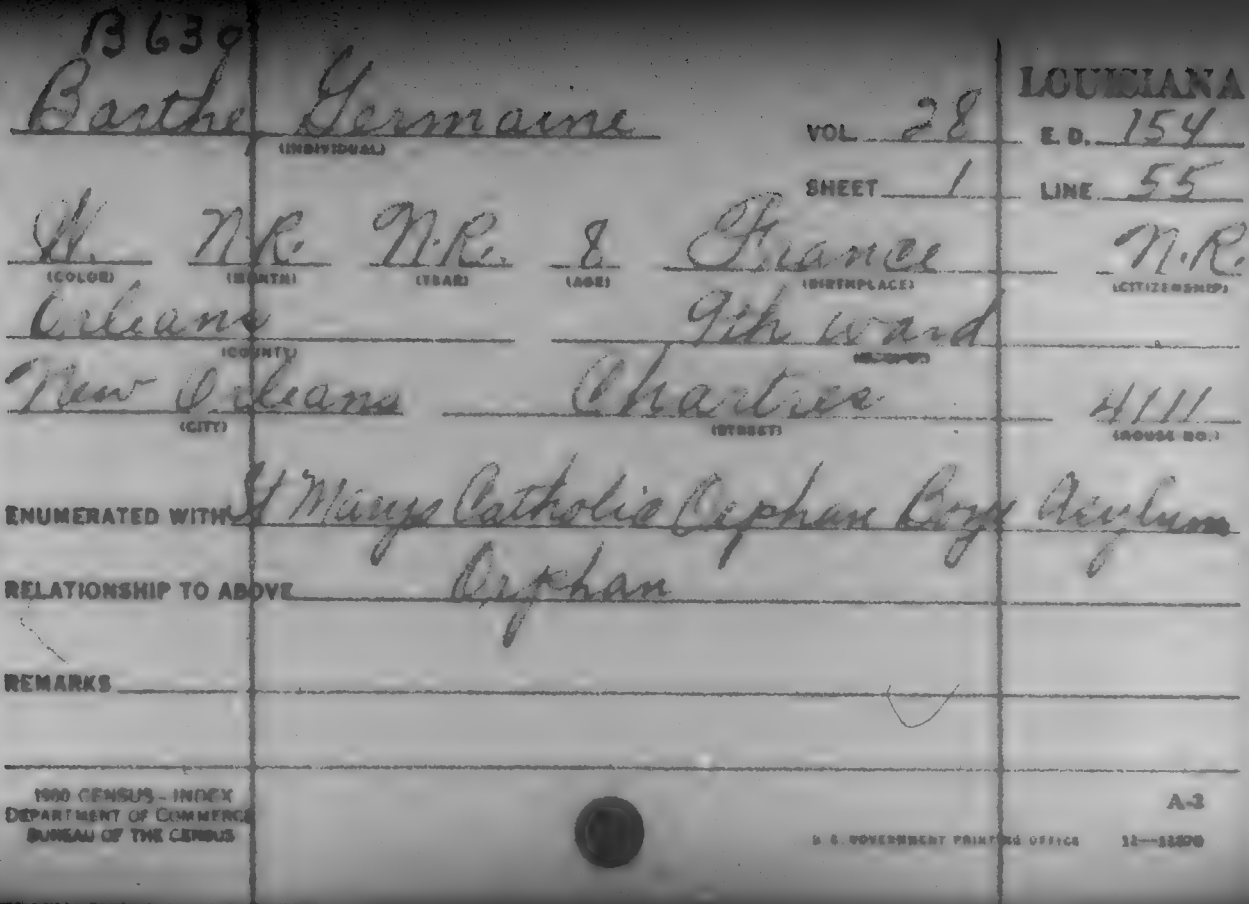 B 630
LOUISIANA
Barthe, Germaine VOL 28 E. D. 154
(INDIVIDUAL)
SHEET 1 LINE 55
W. N.R. N.R. 8 France N.R.
(COLOR) (MONTH) (YEAR) (AGE) (BIRTHPLACE) (CITIZENSHIP)
Orleans 9th Ward
(COUNTY)
New Orleans Chartres 4111
(CITY) (STREET) (HOUSE NO.)
ENUMERATED WITH St Marys Catholic Orphan Boys Asylum
RELATIONSHIP TO ABOVE Orphan
REMARKS
1900 CENSUS - INDEX A-2
DEPARTMENT OF COMMERCE
BUREAU OF THE CENSUS U. S. GOVERNMENT PRINTING OFFICE